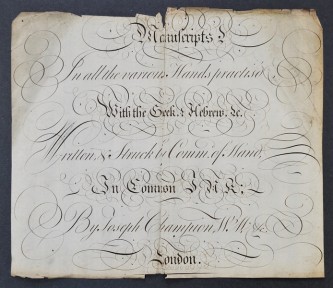 Manuscripts
In all the various Hands practis'd
With the Geek: & Hebrew. &c.
Written & Struck by Comm. of Hand,
In Common INK;
By Joseph Champion, W. M.
London.